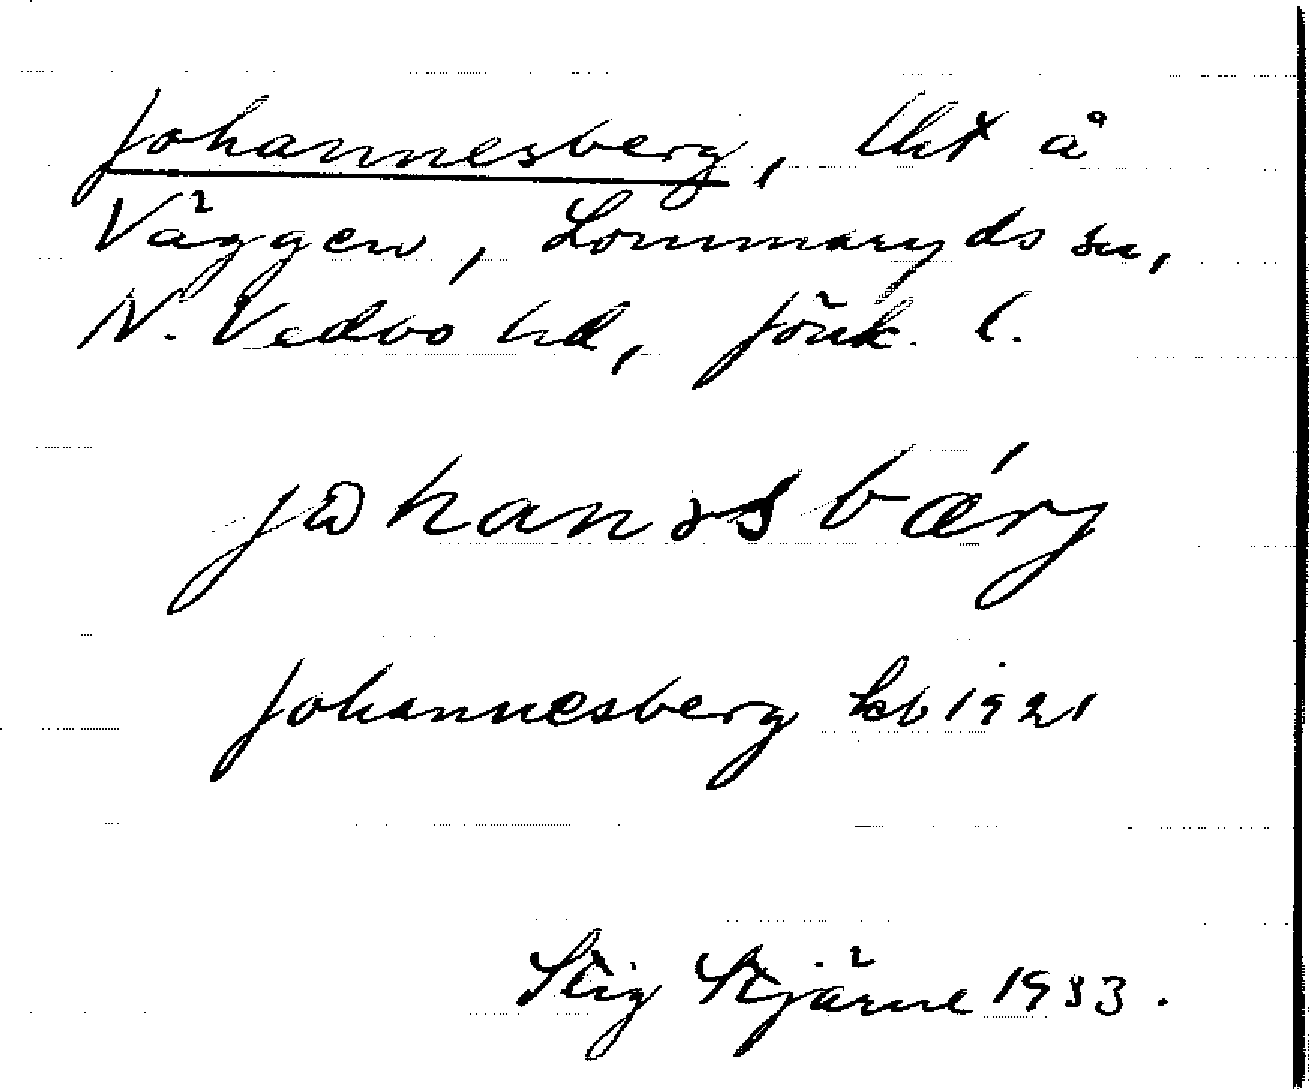 Johannesberg, lht å
Väggen, Lommaryds sn,
N. Vedbo hd, Jönk. l.
johanəsbǽrj
Johannesberg kb 1921
Stig Stjärne 1933.